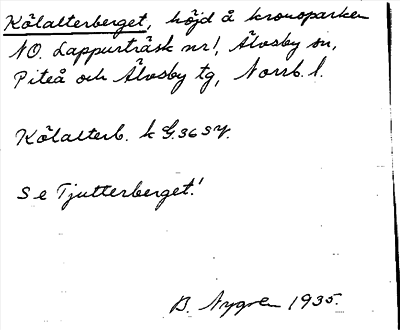 Kölalterberget, höjd å kronoparken
NO. Lappurträsk nr 1, Älvsby sn,
Piteå och Älvsby tg, Norrb. l.
Kölalterb. k G.36 SV.
Se Tjutterberget!
B. Nygren 1935.